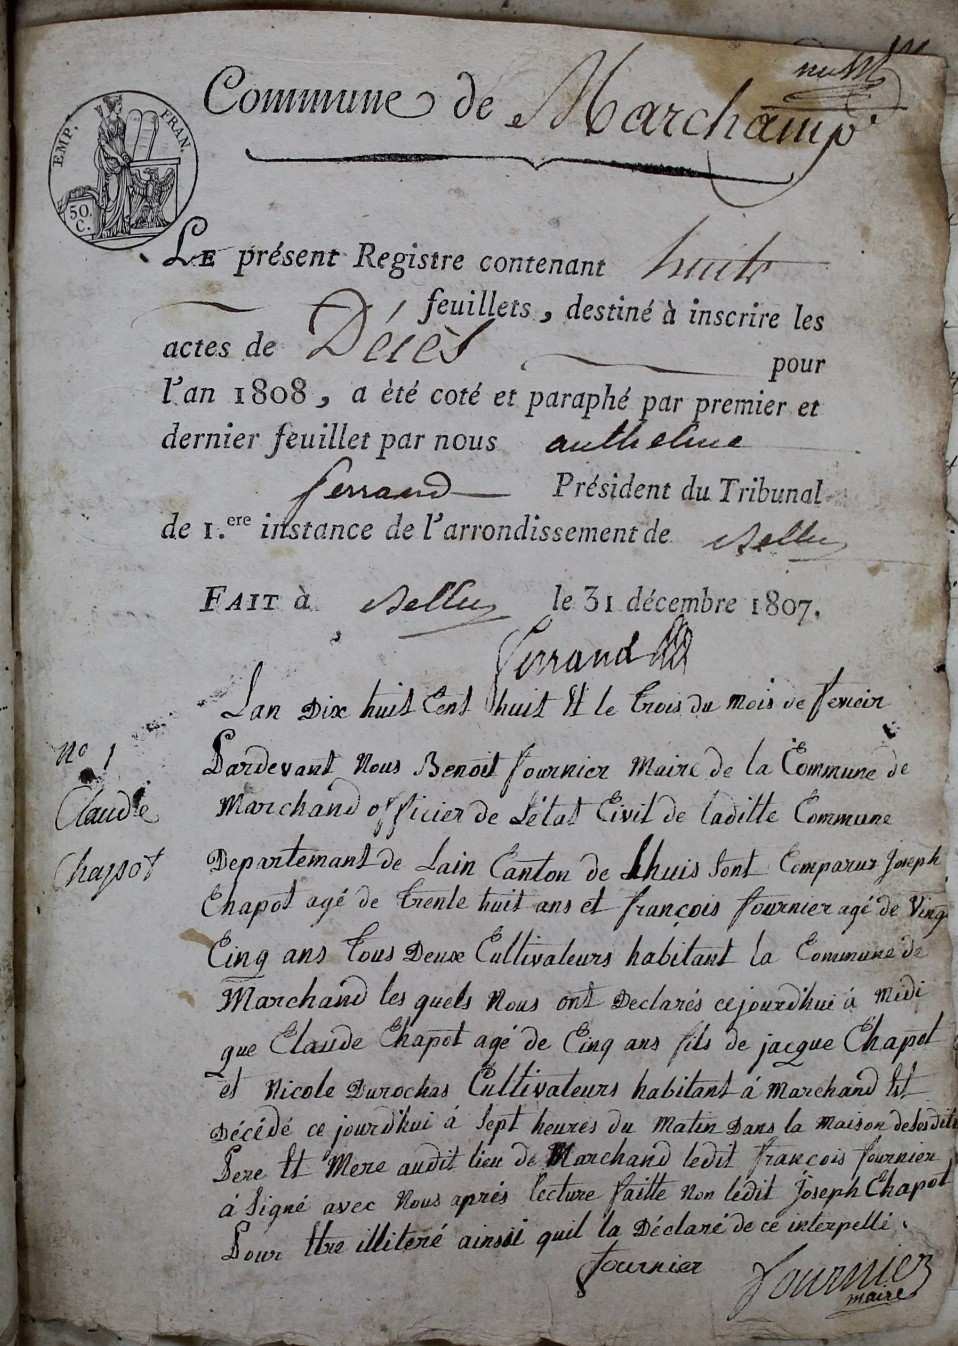 Commune de Marchamp
EMP. FRAN.
50. C.
LE présent Registre contenant huit
feuillets, destiné à inscrire les
actes de Décès pour
l'an 1808, a été coté et paraphé par premier et
dernier feuillet par nous anthelme
ferrand Président du Tribunal
de 1.ere instance de l'arrondissement de Belley
FAIT à Belley le 31 décembre 1807.
ferrand
No 1
Claude
Chappot
Lan Dix huit Cent huit Et le trois du Mois de fevrier
Pardevant Nous Benoit fournier Maire de la Commune de
Marchand officier de L'état Civil de laditte Commune
Departemant de Lain Canton de Lhuis Sont Comparus Joseph
Chapot agé de trente huit ans et françois fournier agé de Ving
Cinq ans tous Deux Cultivateurs habitant la Commune de
Marchand les quels Nous ont Declarés cejourd'hui á Midi
que Claude Chapot agé de Cinq ans fils de jacque Chapot
et Nicole Durochas Cultivateurs habitant á Marchand Est
Décédé ce jourd'hui á Sept heures du Matin Dans la Maison desesdits
Pere Et Mere audit lieu de Marchand ledit françois fournier
á Signé avec Nous aprés lecture faitte Non ledit Joseph Chapot
Pour Etre illiteré ainsi quil la Déclaré de ce interpellé.
fournier
fournier
maire